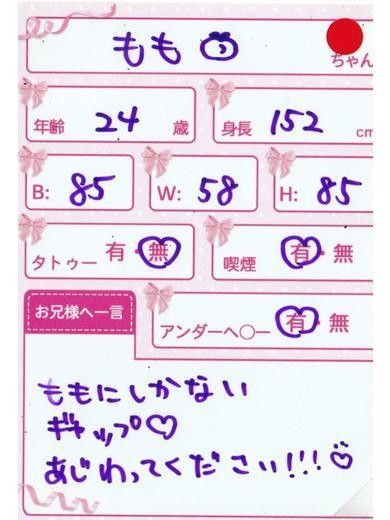 もも
ちゃん
年齢 24 歳
身長 152 cm
B: 85 W: 58 H: 85
タトゥー 有・無
喫煙 有・無
お兄様へ一言
アンダーヘ○ー 有・無
ももにしかない
ギャップ♡
あじわってください!!!